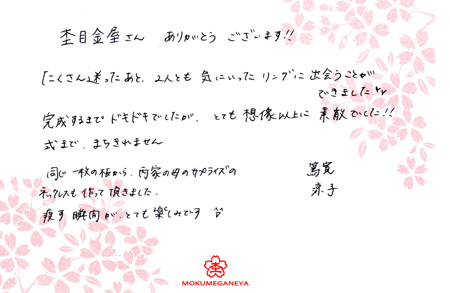 杢目金屋さん ありがとう ございます!!
たくさん迷ったあと、2人とも 気にいった リングに 出会うことが
できました
完成するまで ドキドキでしたが、とても 想像以上に 素敵でした!!
式まで、まちきれません
同じ 一枚の板から、両家の母のサプライズの
ネックレスも 作って 頂きました。
渡す 瞬間が、とても 楽しみです
MOKUMEGANEYA